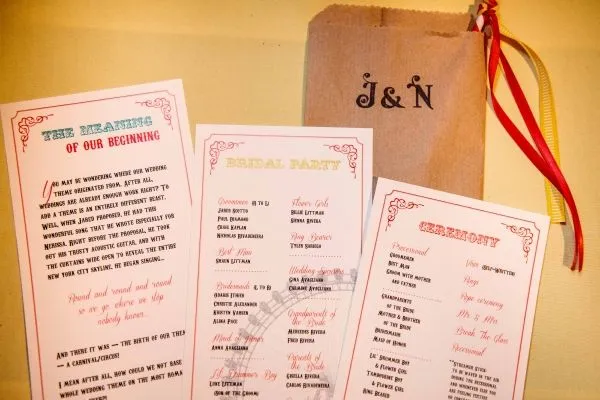 J & N
THE MEANING
OF OUR BEGINNING
YOU MAY BE WONDERING WHERE OUR WEDDING
THEME ORIGINATED FROM. AFTER ALL,
WEDDINGS ARE ALREADY ENOUGH WORK RIGHT? TO
ADD A THEME IS AN ENTIRELY DIFFERENT BEAST.
WELL, WHEN JARED PROPOSED, HE HAD THIS
WONDERFUL SONG THAT HE WROTE ESPECIALLY FOR
NERISSA. RIGHT BEFORE THE PROPOSAL, HE TOOK
OUT HIS TRUSTY ACOUSTIC GUITAR, AND WITH
THE CURTAINS WIDE OPEN TO REVEAL THE ENTIRE
NEW YORK CITY SKYLINE, HE BEGAN SINGING...
Round and round and round
so we go where we stop
nobody knows...
AND THERE IT WAS — THE BIRTH OF OUR THEM
— A CARNIVAL/CIRCUS!
I MEAN AFTER ALL, HOW COULD WE NOT BASE
WHOLE WEDDING THEME ON THE MOST ROMA
BRIDAL PARTY
Groomsmen (L to R)
JARED SCOTTO
PHIL GRAMANO
CRAIG KAPLAN
NICHOLAS RIVADENEIRA
Best Man
SHAUN LITTMAN
Bridesmaids (L to R)
CHRISTIE ALEXANDER
KRISTEN HANSEN
ALINA PAUL
Maid of Honor
ANNA AVAGLIANO
Lil' Drummer Boy
LUKE LITTMAN
(SON OF THE GROOM)
Flower Girls
BILLIE LITTMAN
SIENNA RIVERA
Ring Bearer
TYLER SODEIGN
Wedding Singers
GINA AVAGLIANO
CARMINE AVAGLIANO
Grandparents of
the Bride
MERCEDES RIVERA
FRED RIVERA
Parents of
the Bride
GRISELL RIVERA
CARLOS RIVADENEIRA
CEREMONY
Processional
GROOMSMEN
BEST MAN
GROOM WITH MOTHER
AND FATHER
GRANDPARENTS
OF THE BRIDE
MOTHER & BROTHER
OF THE BRIDE
BRIDESMAIDS
MAID OF HONOR
LIL' DRUMMER BOY
& FLOWER GIRL
TAMBOURINE BOY
& FLOWER GIRL
RING BEARER
Vows (SELF-WRITTEN)
Rings
Rope ceremony
Mr. & Mrs.
Break The Glass
Recessional
**STREAMER STICK
TO BE WAVED IN THE AIR
DURING THE RECESSIONAL
AND WHENEVER ELSE YOU